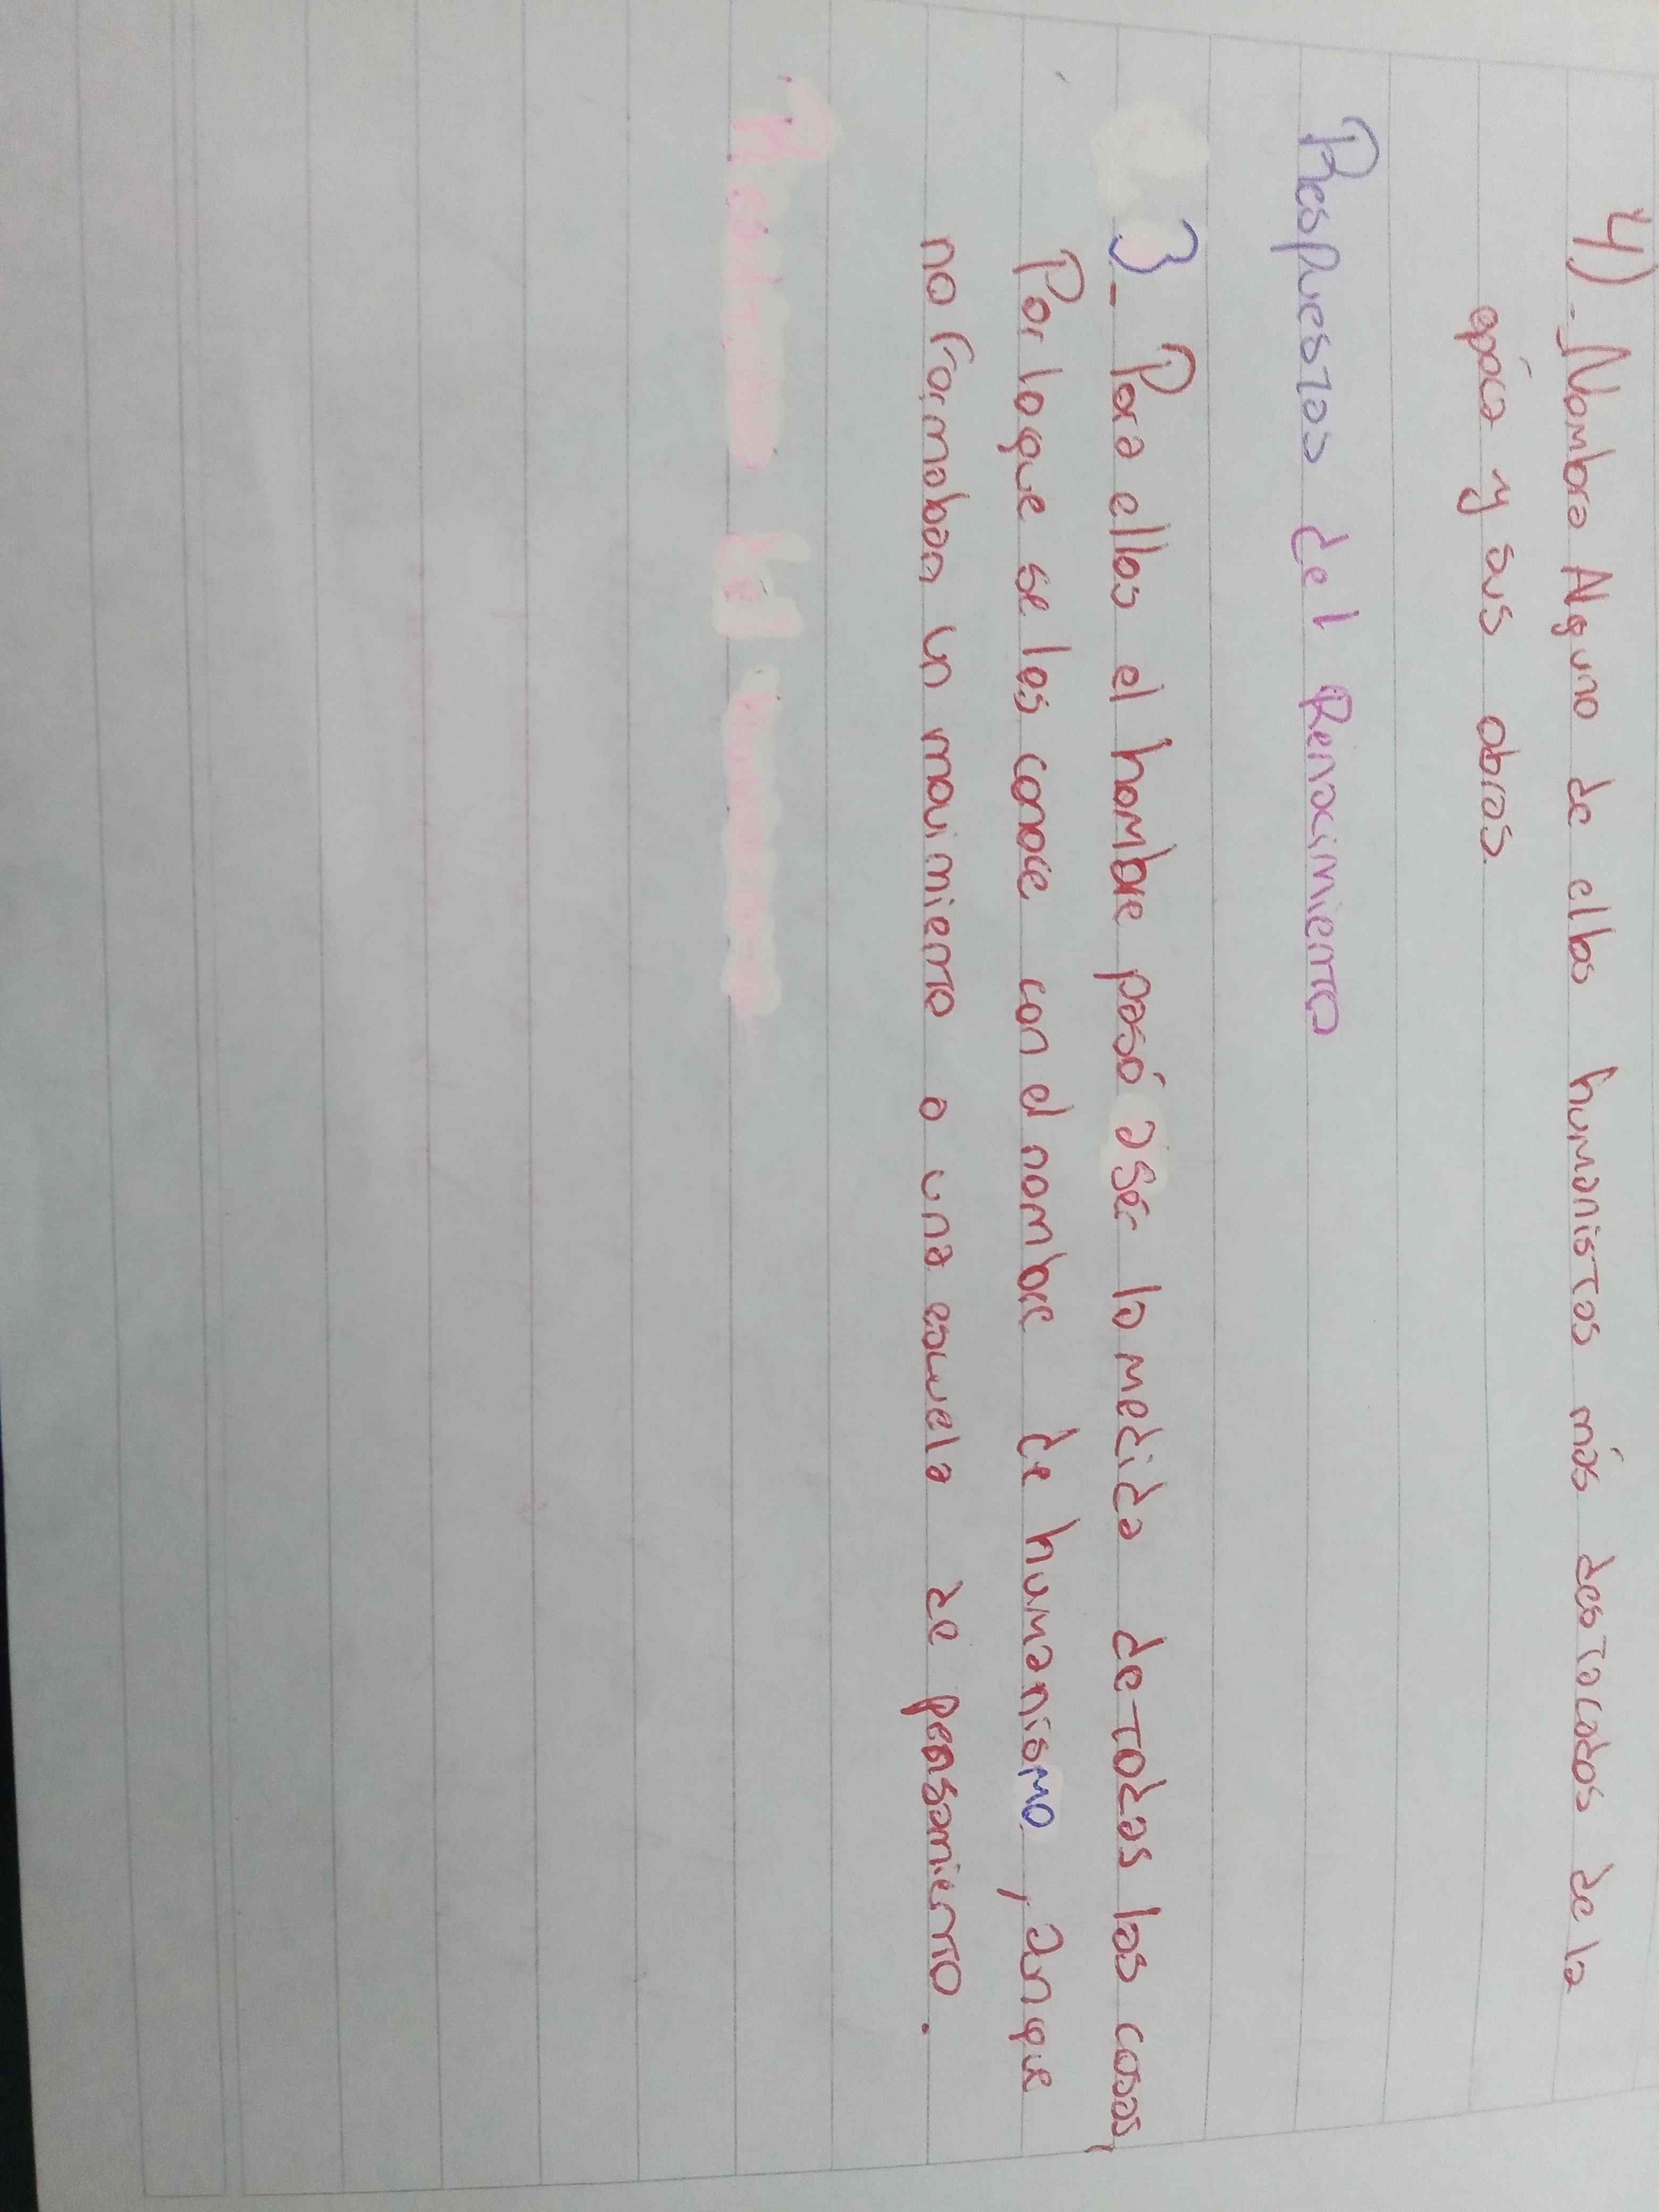 4).-Nombra Alguno de ellos humanistas más destacados de la
epóca y sus obras.
Respuestas del Renacimiento
3- Para ellos el hombre pasó aser la medida de todas las cosas,
Por lo que se les conoce con el nombre de humanismo, aunque
no Formaban un movimiento o una escuela de pensamiento.